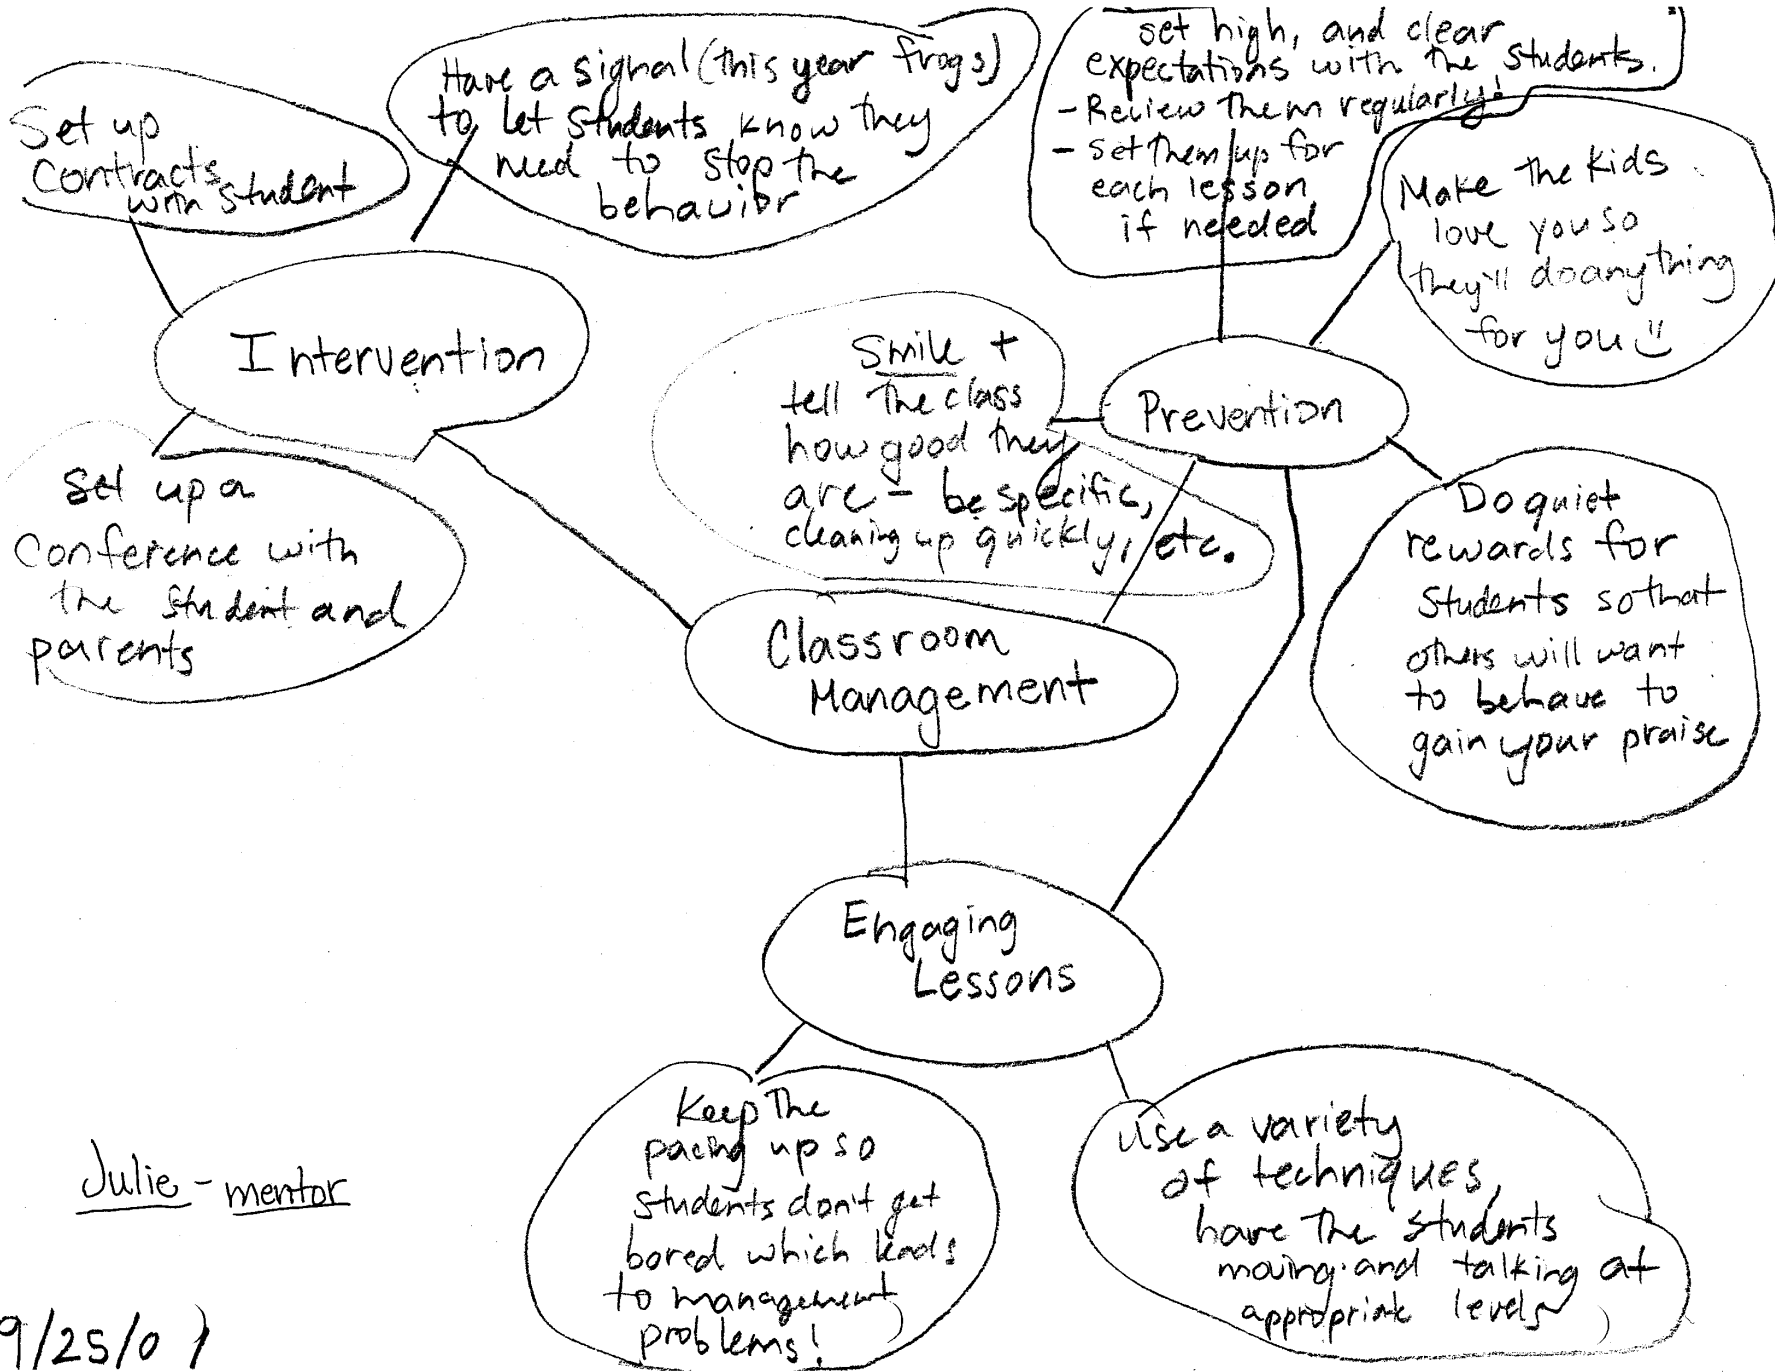 Set up
Contracts
with student
Have a signal (this year frogs)
to let students know they
need to stop the
behavior
set high, and clear
expectations with the students.
- Review them regularly!
- set them up for
each lesson
if needed
Make the kids
love you so
they'll do anything
for you
Intervention
Smile +
tell the class
how good they
are - be specific,
cleaning up quickly, etc.
Prevention
Set up a
Conference with
the student and
parents
Do quiet
rewards for
students so that
others will want
to behave to
gain your praise
Classroom
Management
Engaging
Lessons
Keep the
pacing up so
students don't get
bored which leads
to management
problems!
Use a variety
of techniques,
have the students
moving and talking at
appropriate levels
Julie - mentor
9/25/07